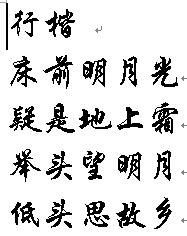 行楷
床前明月光
疑是地上霜
举头望明月
低头思故乡